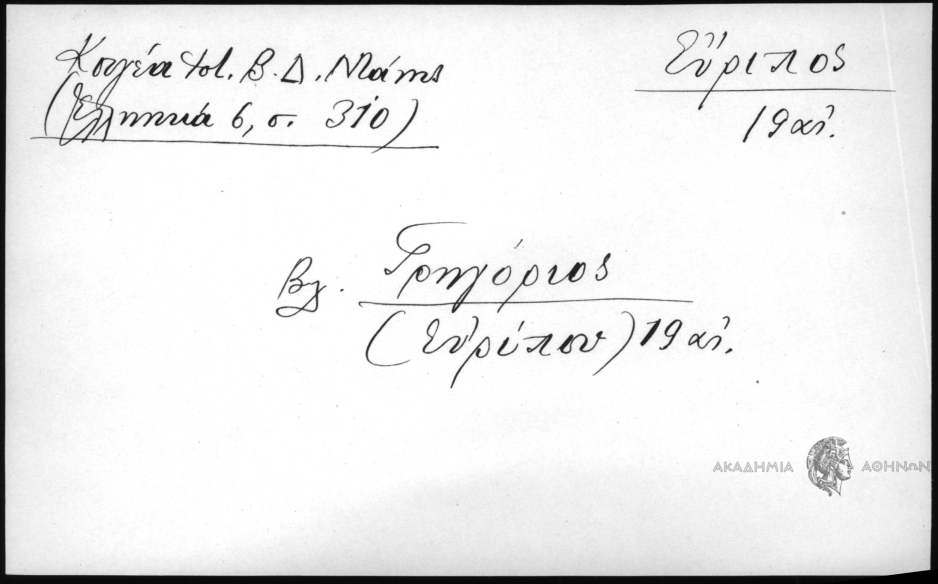 Κουγέα Σωτ. Β. Δ. Μάνης
(Ἑλληνικά 6, σ. 310)
Εὔριπος
19 αἰ.
Βλ. Γρηγόριος
(Εὐρίπου) 19 αἰ.
ΑΚΑΔΗΜΙΑ ΑΘΗΝΩΝ